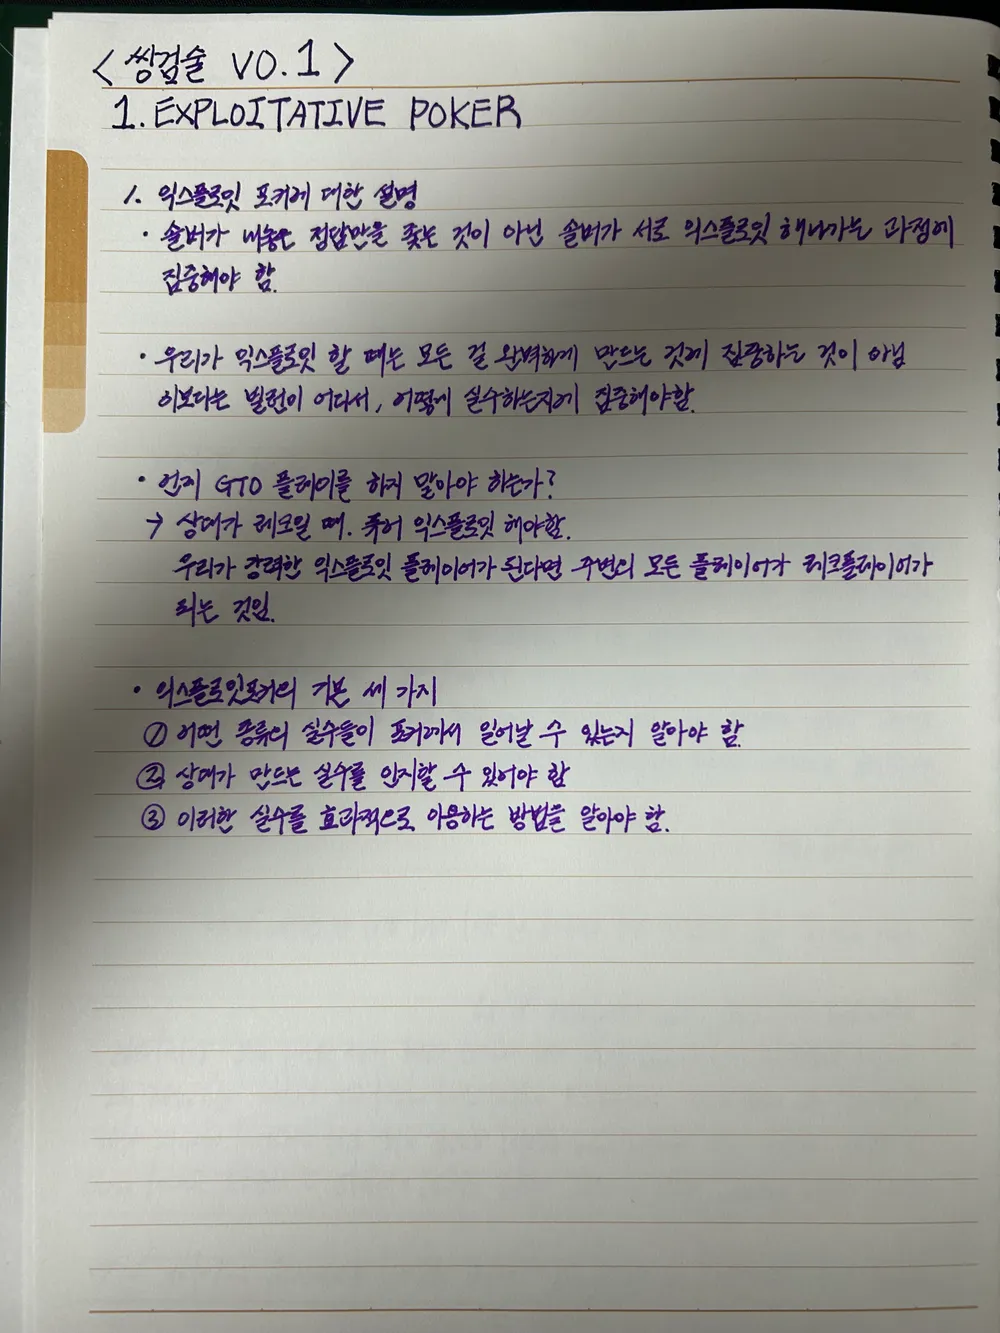 <쌍검술 V0.1>
1. EXPLOITATIVE POKER
1. 익스플로잇 포커에 대한 설명
· 솔버가 내놓은 정답만을 쫓는 것이 아닌 솔버가 서로 익스플로잇 해나가는 과정에
집중해야 함.
· 우리가 익스플로잇 할 때는 모든 걸 완벽하게 만드는 것에 집중하는 것이 아님
이보다는 빌런이 어디서, 어떻게 실수하는지에 집중해야함.
· 언제 GTO 플레이를 하지 말아야 하는가?
→ 상대가 레크일 때. 퓨어 익스플로잇 해야함.
우리가 강력한 익스플로잇 플레이어가 된다면 주변의 모든 플레이어가 레크플레이어가
되는 것임.
· 익스플로잇포커의 기본 세 가지
① 어떤 종류의 실수들이 포커에서 일어날 수 있는지 알아야 함.
② 상대가 만드는 실수를 인지할 수 있어야 함
③ 이러한 실수를 효과적으로 이용하는 방법을 알아야 함.